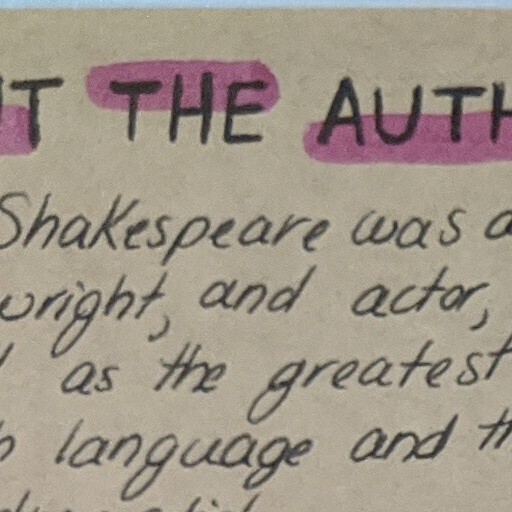 THE AUTH
Shakespeare was a
wright, and actor,
as the greatest
language and th